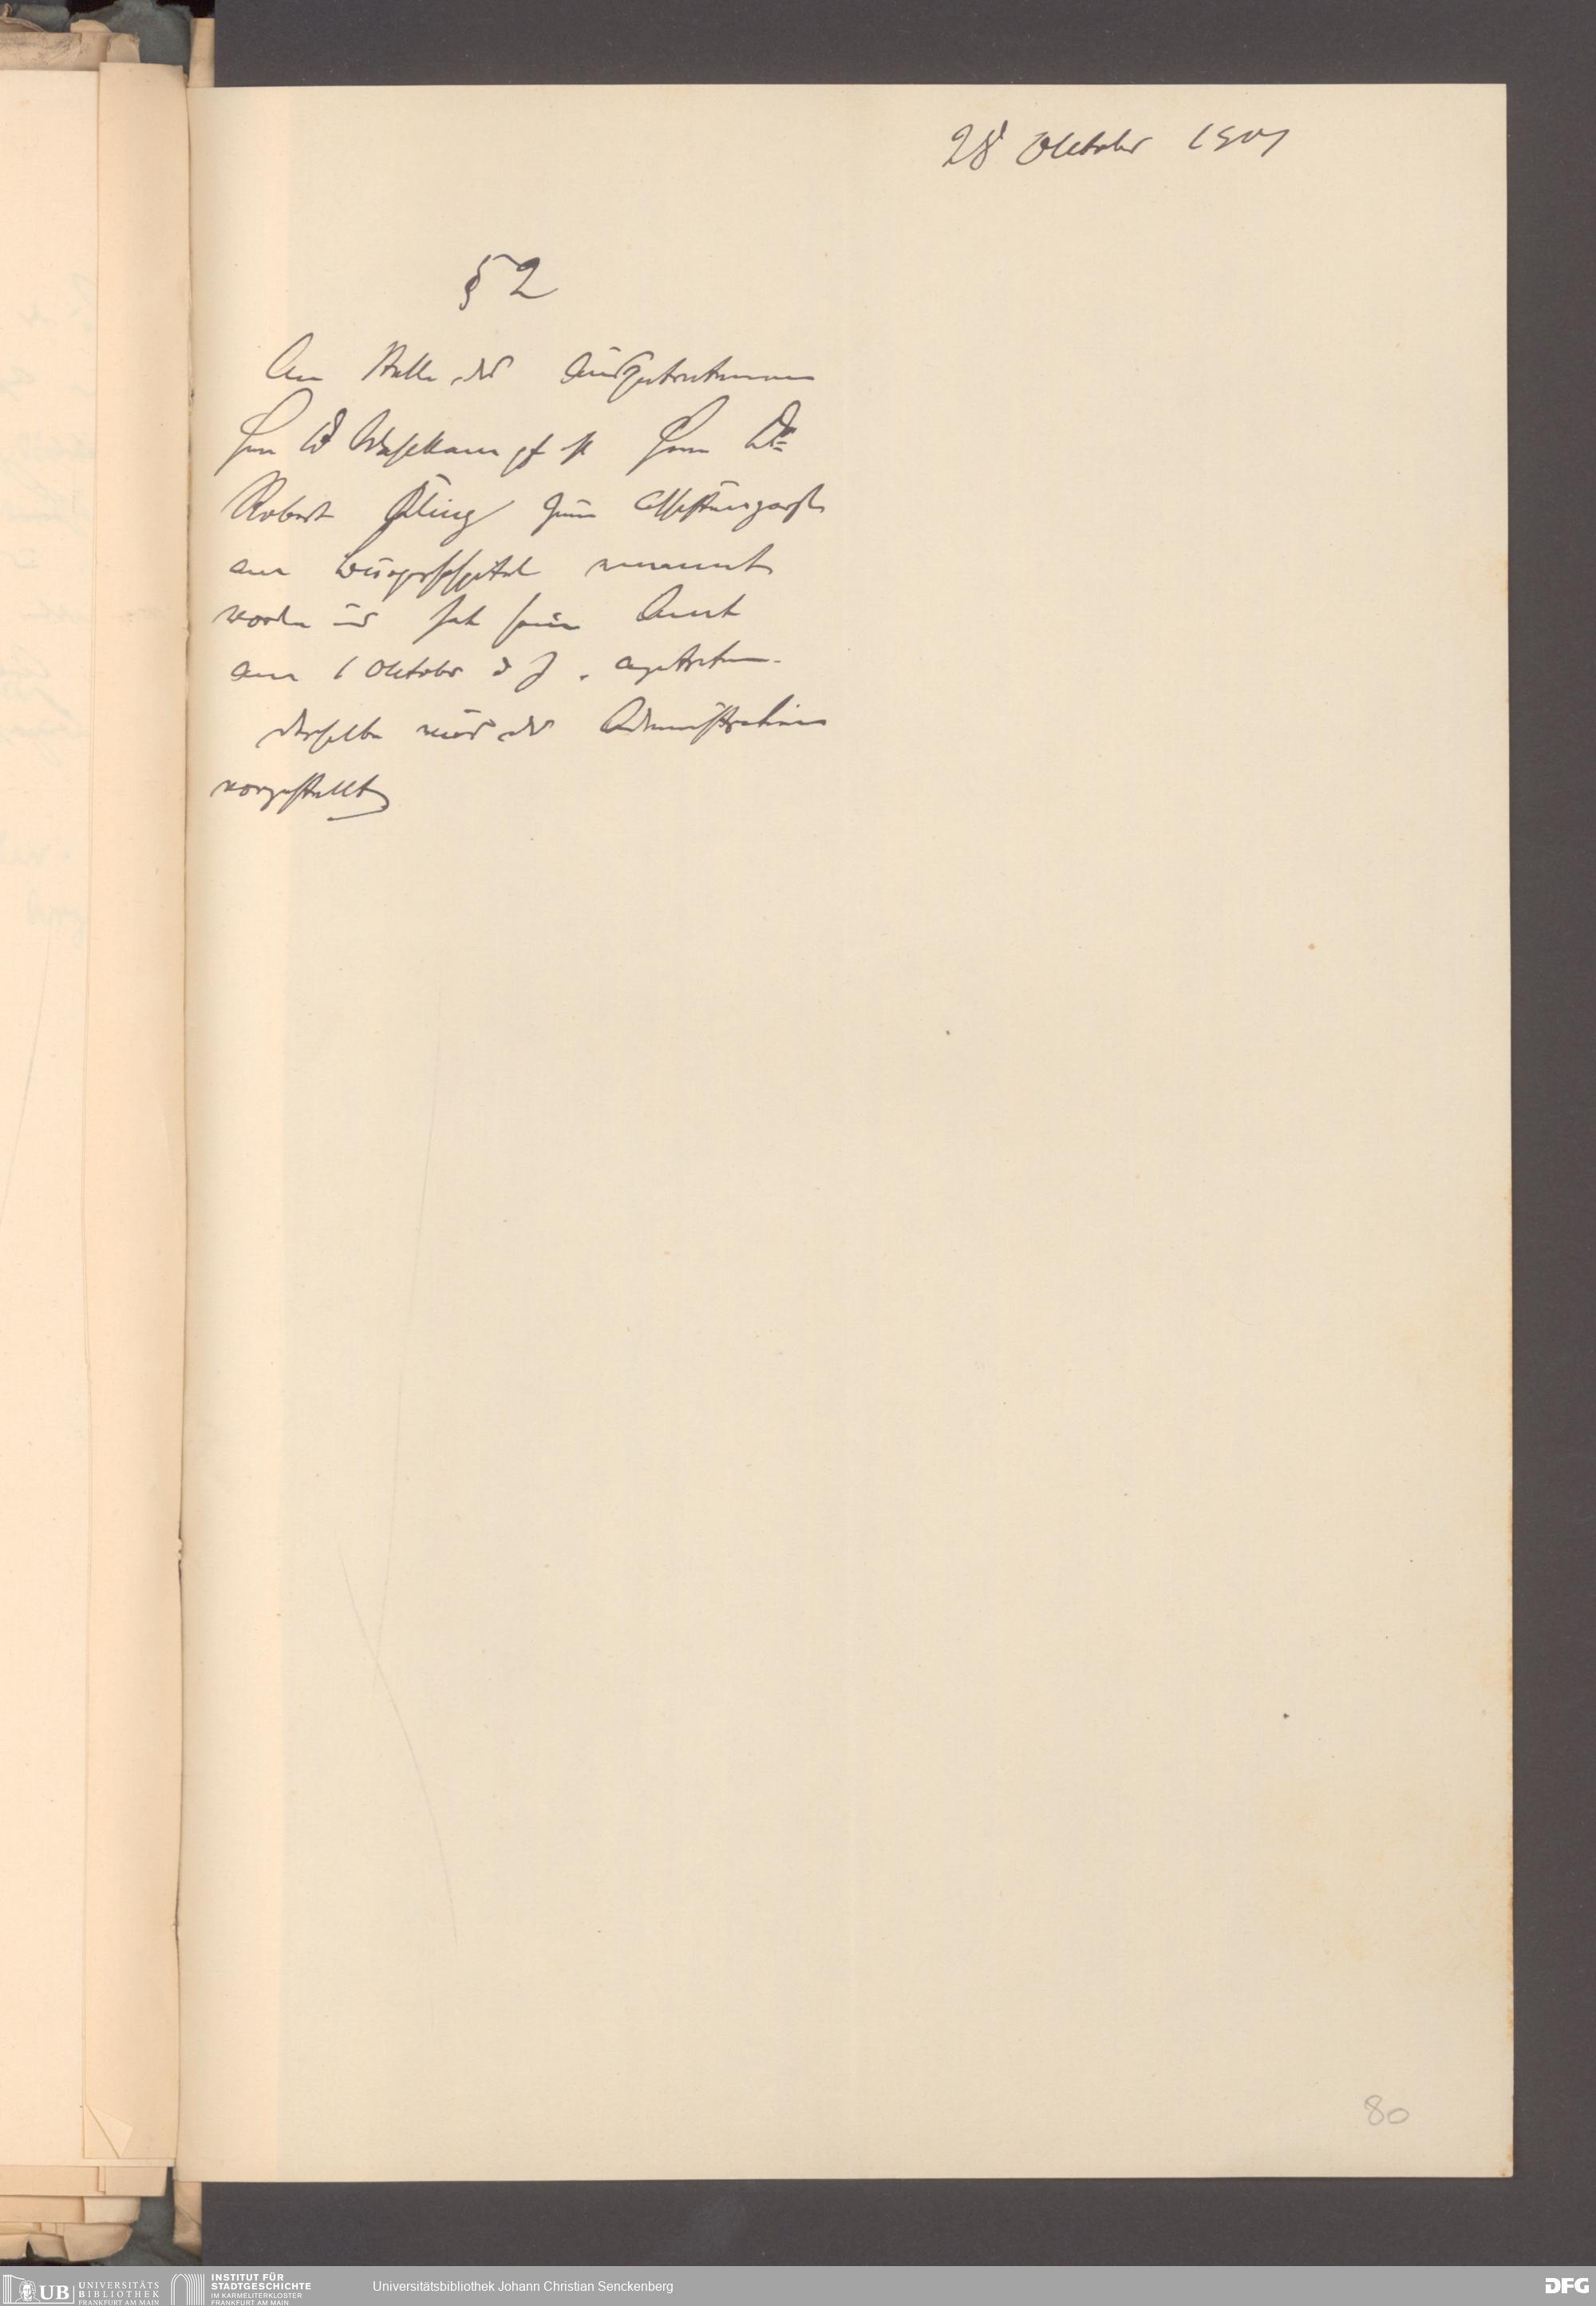 28 Oktober 1907
§ 2
An Stelle des ausgetretenen
Herrn Dr Waselkampf ist Herr Dr
Robert Kling zum Assistenzarzt
am Bürgerhospital ernannt
worden und hat sein Amt
am 1 Oktober d J. angetreten.
derselbe wird der Administration
vorgestellt
80
UB UNIVERSITÄTS
BIBLIOTHEK
FRANKFURT AM MAIN
INSTITUT FÜR
STADTGESCHICHTE
IM KARMELITERKLOSTER
FRANKFURT AM MAIN
Universitätsbibliothek Johann Christian Senckenberg
DFG